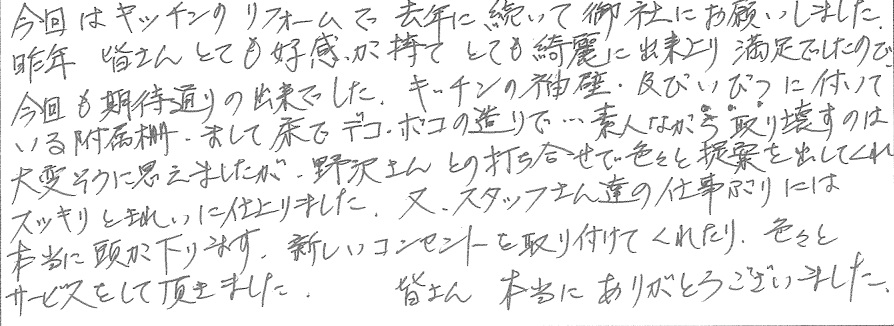 今回はキッチンのリフォームで 去年に続いて御社にお願いしました。
昨年 皆さんとても好感が持て とても綺麗に出来上り 満足でしたので
今回も期待通りの出来でした。キッチンの袖壁・及びいびつに付いて
いる附属棚・まして床でデコ・ボコの造りで…素人ながら取り壊すのは
大変そうに思えましたが、野沢さんとの打ち合せで色々と提案を出してくれ
スッキリときれいに仕上りました。又、スタッフさん達の仕事ぶりには
本当に頭が下ります。新しいコンセントを取り付けてくれたり、色々と
サービスをして頂きました。 皆さん 本当にありがとうございました。